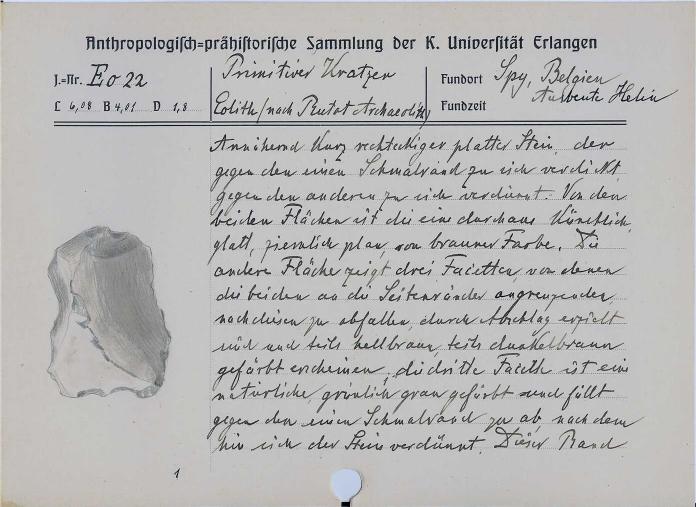 Anthropologisch=prähistorische Sammlung der K. Universität Erlangen
J.=Nr. Eo 22
Primitiver Kratzer
Fundort Spy, Belgien
Ausbeute Helin
L 6,08 B 4,01 D 1,8
Eolith (nach Rutot Archaeolith)
Fundzeit
Annähernd kurz rechteckiger platter Stein, der
gegen den einen Schmalrand zu sich verdickt
gegen den anderen zu sich verdünnt. Von den
beiden Flächen ist die eine durchaus künstlich,
glatt, ziemlich plan, von brauner Farbe. Die
andere Fläche zeigt drei Facetten, von denen
die beiden an die Seitenränder angrenzenden,
nach diesen zu abfallen, durch Abschlag erzielt
sind und teils hellbraun, teils dunkelbraun
gefärbt erscheinen, die dritte Facette ist eine
natürliche, grünlich grau gefärbt und fällt
gegen den einen Schmalrand zu ab, nach dem
hin sich der Stein verdünnt. Dieser Rand
1